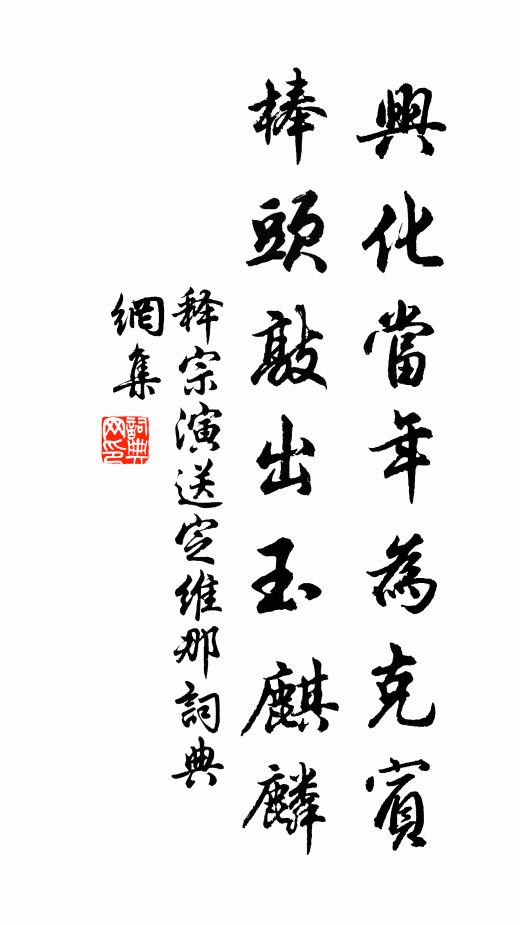 興化當年為克賓
棒頭敲出玉麒麟
释宗演送定維那詞典
網集
詞典網印